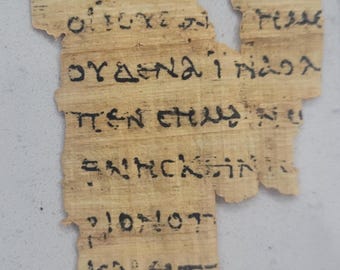 ΟΙ ΙΟΥΔ ΗΜΕ
ΟΥΔΕΝΑ ΪΝΑ Ο Λ
ΠΕΝ CΗΜ Ν
ΘΝΗCΚΕΙΝ Ι
ΡΙΟΝ Ο Π